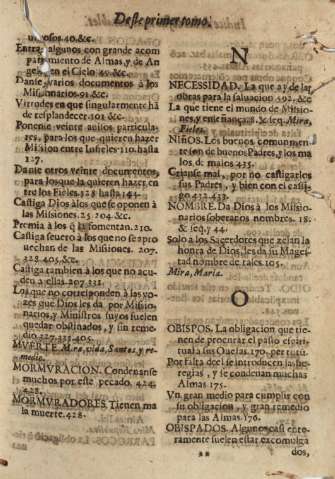 Deste primer tomo.
40. &c.
Entrar algunos con grande acom
pañamiento de Almas, y de An
geles en el Cielo 49. &c.
Danse varios documentos à los
Missionarios. 91. &c.
Virtudes en que singularmente hã
de resplandecer. 101. &c.
Ponense veinte auisos particula-
res, para los que quieren hazer
Mission entre Infieles. 110. hasta
127.
Danse otros veinte documentos,
para los que la quieren hazer en
tre los Fieles. 128. hasta 144.
Castiga Dios à los que se oponen à
las Missiones. 25. 204. &c.
Premia à los q̃ la fomentan. 210.
Castiga seuero à los que no se apro
uechan de las Missiones. 207.
328. 405. &c.
Castiga tambien à los que no acu-
den a ellas. 207. 331.
Los que no corresponden à las vo-
zes que Dios les dà, por Missio-
narios, y Ministros suyos suelen
quedar obstinados, y sin reme-
dio. 327. 331. 405.
MVERTE. Mira, vida, Santos, y re-
medio.
MORMVRACION. Condenanse
muchos por este pecado. 424.
428.
MORMVRADORES. Tienen ma
la muerte. 428.
N
NECESSIDAD. La que ay de las
obras para la saluacion. 592. &c.
La que tiene el mundo de Missio-
nes, y enseñanças. & seq. Mira,
Fieles.
NIÑOS. Les buenos comunmen-
te son de buenos Padres, y los ma
los de malos. 435.
Crianse mal, por no castigarles
sus Padres, y bien con el castigo.
433. 439.
NOMBRE. Da Dios à los Missio-
narios soberanos nombres. 18.
& seq. y 44.
Solo à los Sacerdotes que zelan la
honra de Dios, les dà su Mages-
tad nombre de tales. 105.
Mira, Maria.
O
OBISPOS. La obligacion que tie-
nen de procurar el pasto espiri-
tual a sus Ouejas. 170. per tutũ.
Por falta del se introducen las he-
regias, y se condenan muchas
Almas 175.
Vn gran medio para cumplir con
su obligacion, y gran remedio
para las Almas. 176.
OBISPADOS. Algunos casi ente-
ramente suelen estar excomulga
dos,